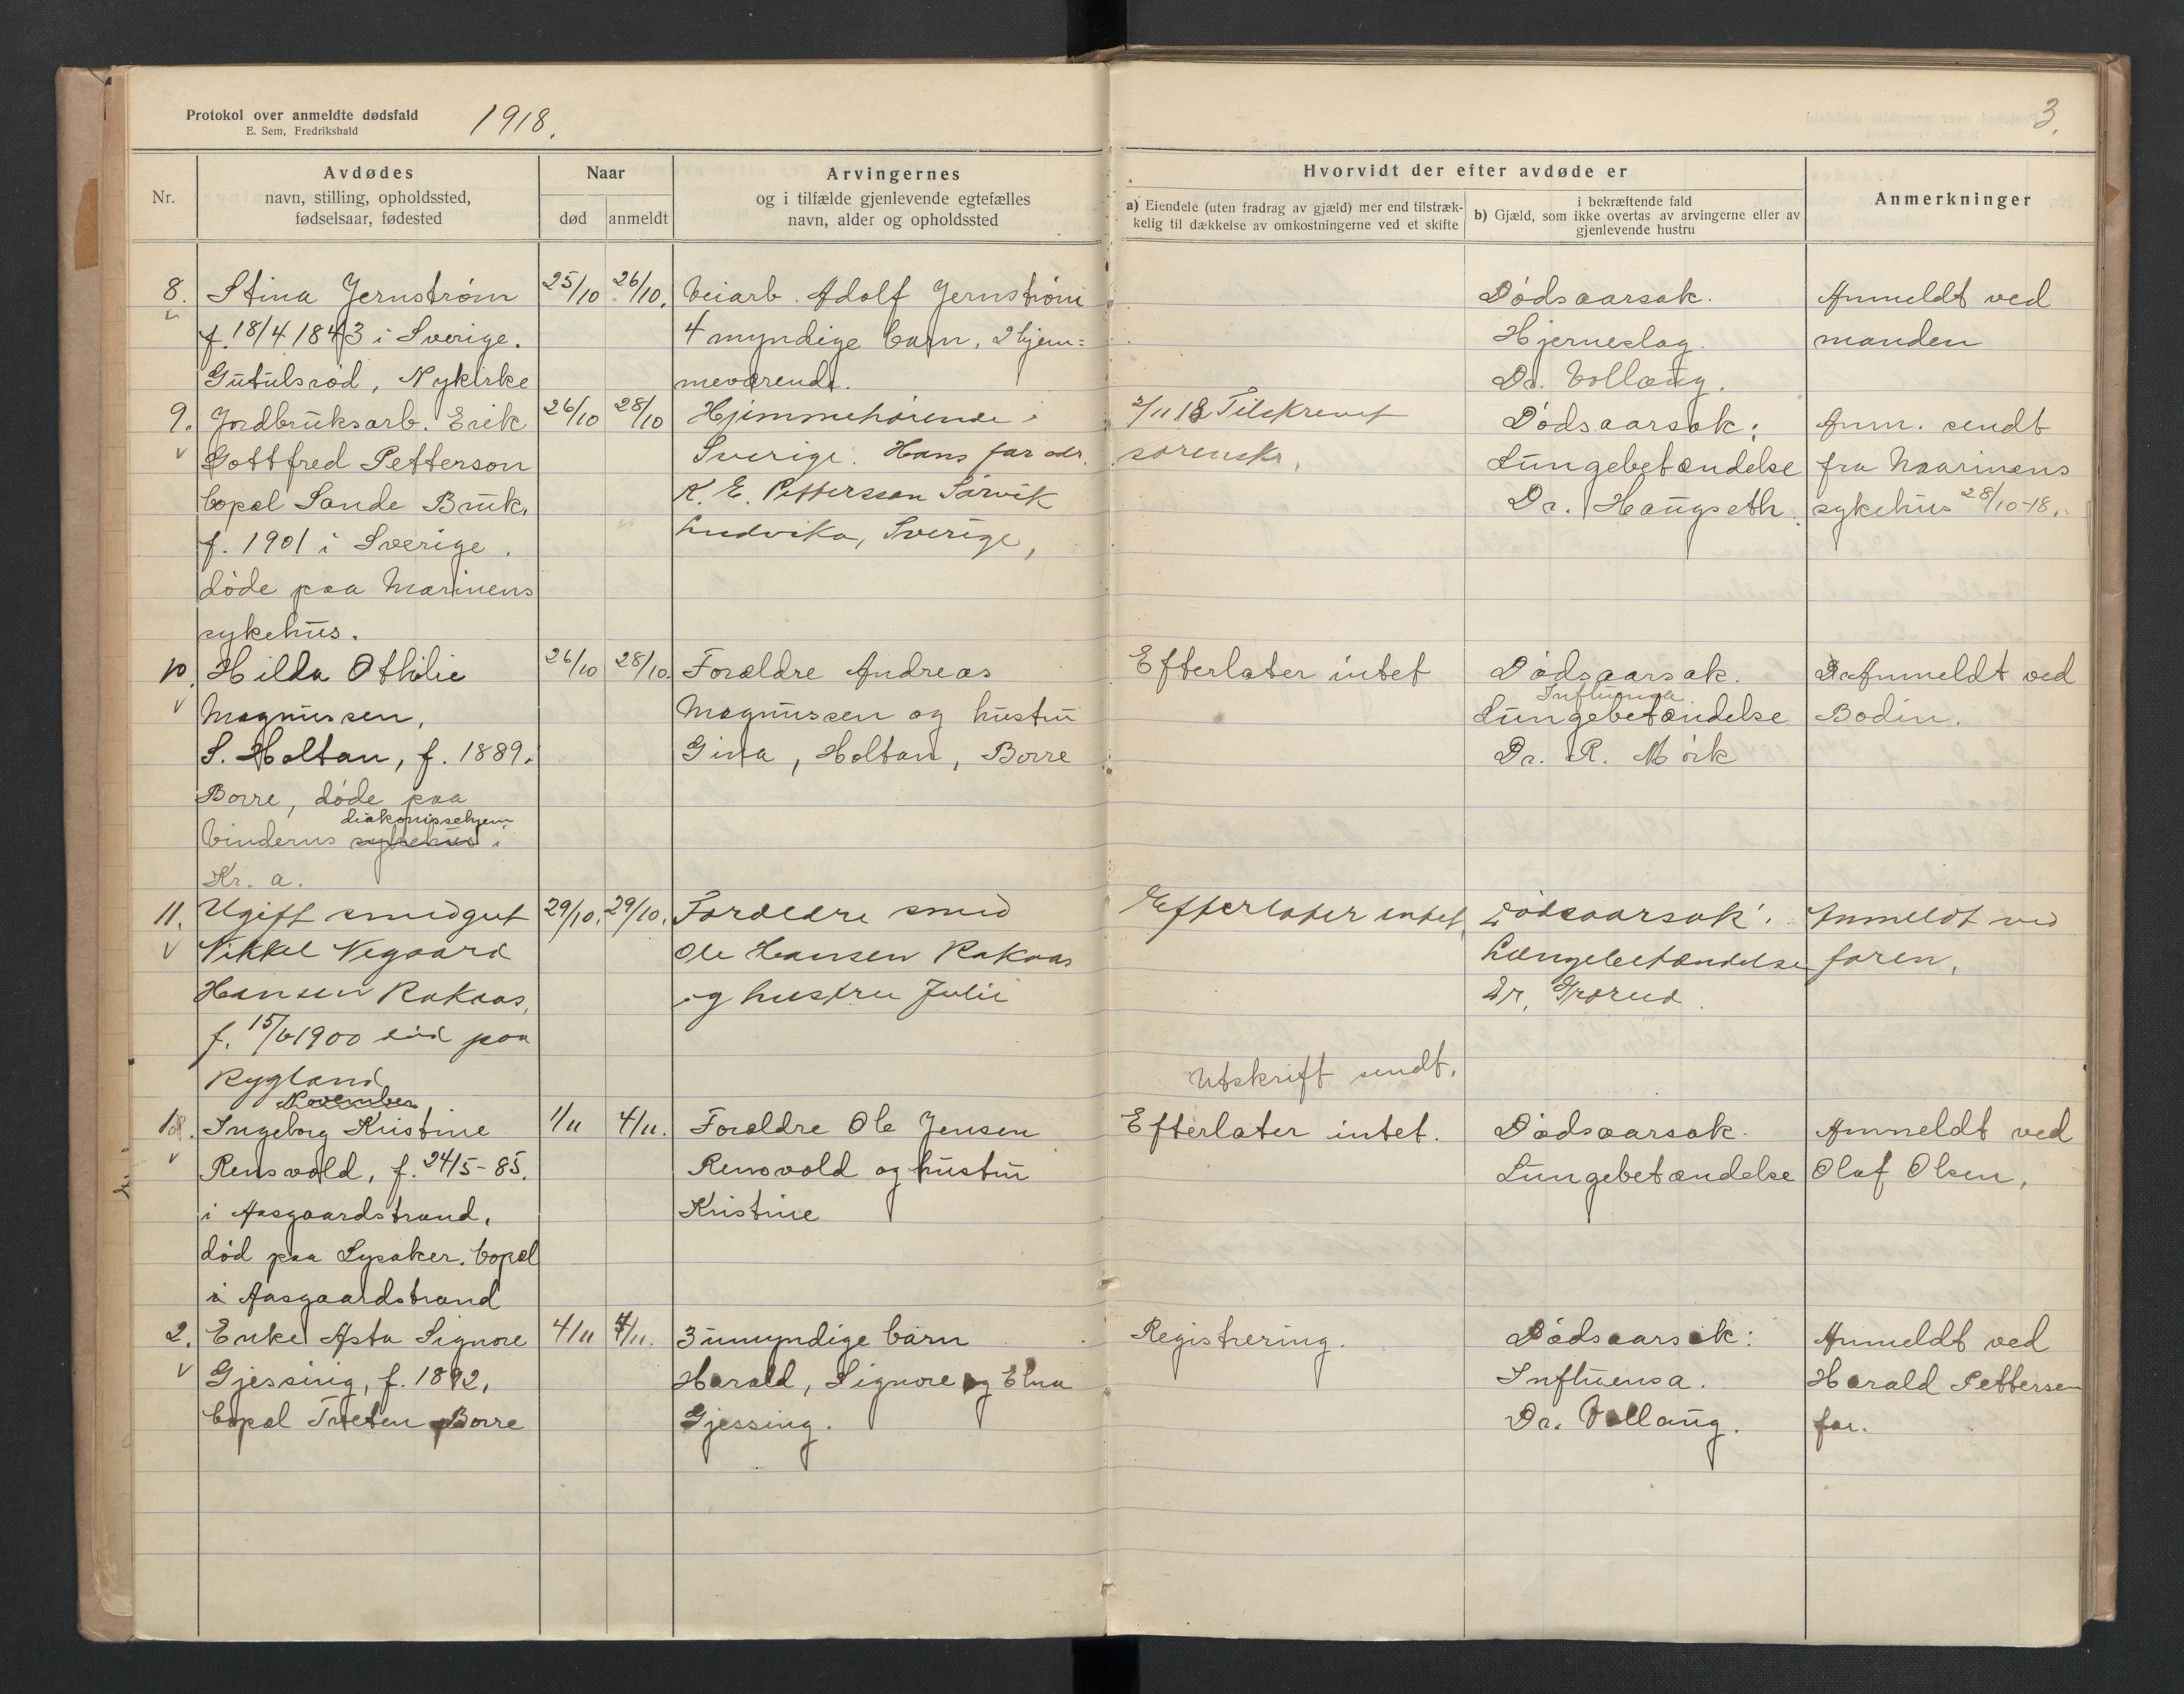 Protokol over anmeldte dødsfald
E. Sem, Fredrikshald
1918.
3.
Nr.
Avdødes
navn, stilling, opholdssted,
fødselsaar, fødested
Naar
død
anmeldt
Arvingernes
og i tilfælde gjenlevende egtefælles
navn, alder og opholdssted
Hvorvidt der efter avdøde er
a) Eiendele (uten fradrag av gjæld) mer end tilstræk-
kelig til dækkelse av omkostningerne ved et skifte
i bekræftende fald
b) Gjæld, som ikke overtas av arvingerne eller av
gjenlevende hustru
Anmerkninger
8.
Stina Jernstrøm
f. 18/4 1843 i Sverige.
Gutulsrød, Nykirke
25/10
26/10.
Veiarb. Adolf Jernstrøm
4 myndige barn, 2 hjem=
meværende.
Dødsaarsak.
Hjerneslag.
Dr. Vollaug.
Anmeldt ved
manden
9.
Jordbruksarb. Erik
Gottfred Petterson
bopæl Sande Bruk,
f. 1901 i Sverige.
døde paa Marinens
sykehus.
26/10
28/10
Hjemmehørende i
Sverige. Hans far adr.
K. E. Pettersson Sörvik
Ludvika, Sverige,
2/11 18 Tilskrevet
sorenskr.
Dødsaarsak:
Lungebetændelse
Dr. Haugseth.
Anm. sendt
fra Marinens
sykehus 28/10-18.
10.
Hilda Othilie
Magnussen,
S. Holtan, f. 1889.
Borre, døde paa
diakonissehjem
Vinderns sykehus i
Kr. a.
26/10
28/10.
Forældre Andreas
Magnussen og hustru
Gina, Holtan, Borre
Efterlater intet
Dødsaarsak.
Influensa
Lungebetændelse
Dr. R. Mørk
Anmeldt ved
Bodin.
11.
Ugift smedgut
Nikkel Vegaard
Hansen Rakaas,
f. 15/6 1900 død paa
Rygland
29/10.
29/10.
Forældre smed
Ole Hansen Rakaas
og hustru Julie
Efterlater intet
Dødsaarsak.
Lungebetændelse
Dr. Grorud
Anmeldt ved
faren.
Utskrift sendt.
November
18.
Ingeborg Kristine
Rensvold, f. 24/5-85.
i Aasgaardstrand,
død paa Lysaker. bopæl
i Aasgaardstrand
1/11
4/11.
Forældre Ole Jensen
Rensvold og hustru
Kristine
Efterlater intet.
Dødsaarsak.
Lungebetændelse
Anmeldt ved
Olaf Olsen,
2.
Enke Asta Signore
Gjessing, f. 1892,
bopæl Tveten Borre
4/11
3 umyndige barn
Harald, Signore og Elna
Gjessing.
Registrering.
Dødsaarsak:
Influensa.
Dr. Vollaug.
Anmeldt ved
Harald Pettersen
far.